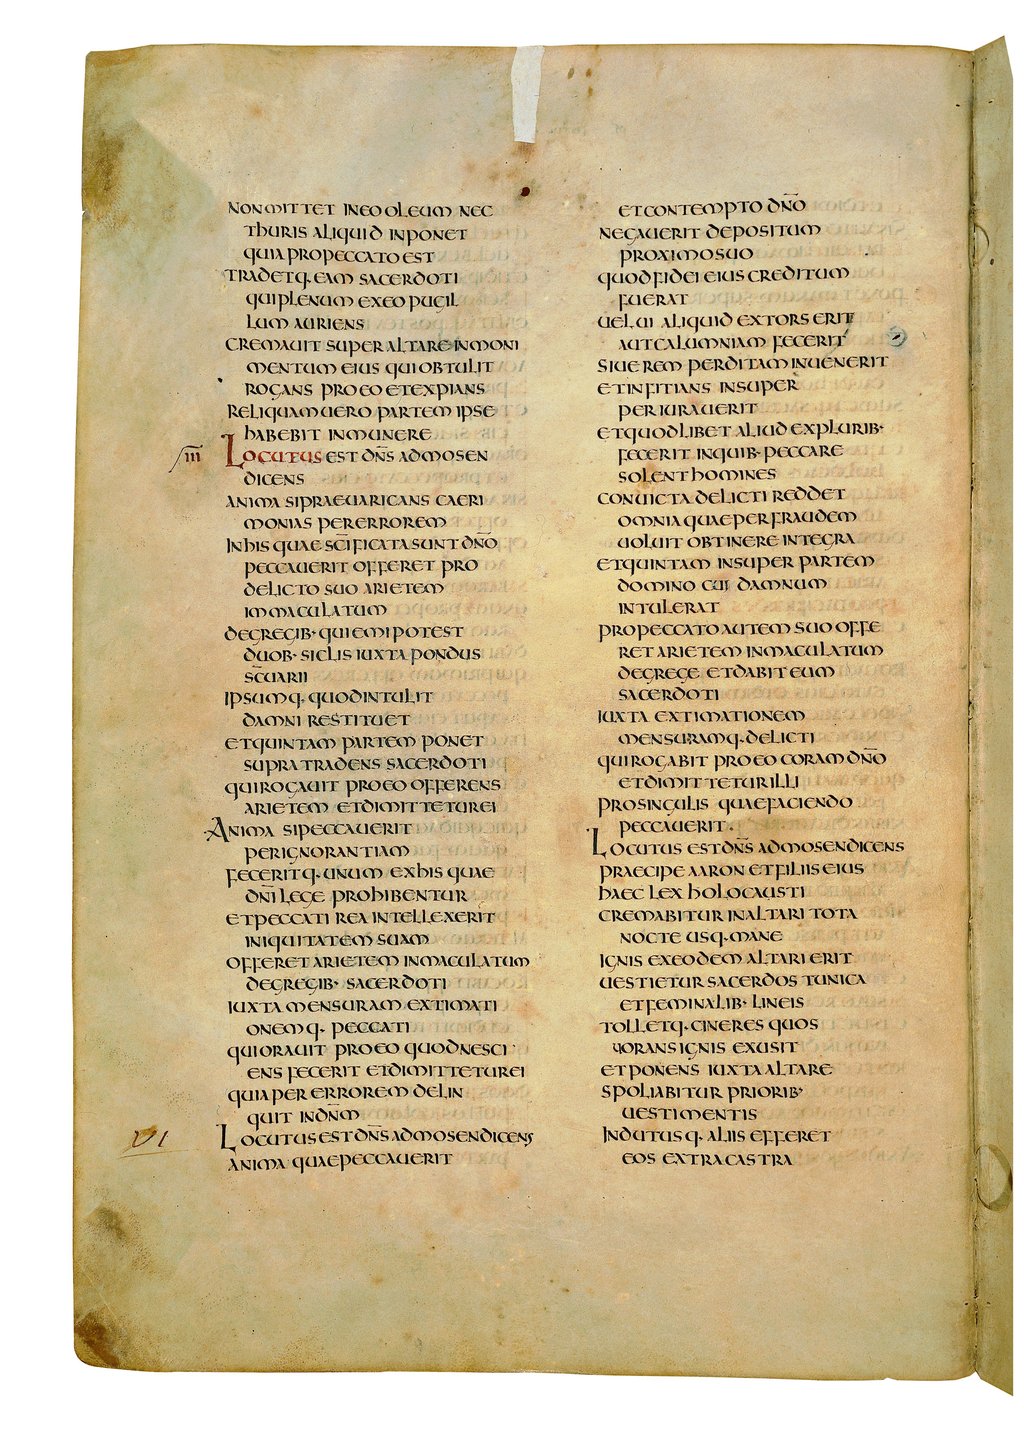 NON MITTET IN EO OLEUM NEC
THURIS ALIQUID INPONET
QUIA PRO PECCATO EST
TRADETQ· EAM SACERDOTI
QUI PLENUM EX EO PUGIL
LUM AURIENS
CREMAVIT SUPER ALTARE IN MONI
MENTUM EIUS QUI OBTULIT
ROGANS PRO EO ET EXPIANS
RELIQUAM UERO PARTEM IPSE
HABEBIT IN MUNERE
III
LOCUTUS EST DN̄S AD MOSEN
DICENS
ANIMA SI PRAEUARICANS CAERI
MONIAS PER ERROREM
IN HIS QUAE SC̄IFICATA SUNT DN̄O
PECCAUERIT OFFERET PRO
DELICTO SUO ARIETEM
IMMACULATUM
DE GREGIB· QUI EMI POTEST
DUOB· SICLIS IUXTA PONDUS
SC̄UARII
IPSUMQ· QUOD INTULIT
DAMNI RESTITUET
ET QUINTAM PARTEM PONET
SUPRA TRADENS SACERDOTI
QUI ROGAUIT PRO EO OFFERENS
ARIETEM ET DIMITTETUR EI
ANIMA SI PECCAUERIT
PER IGNORANTIAM
FECERITQ· UNUM EX HIS QUAE
DN̄I LEGE PROHIBENTUR
ET PECCATI REA INTELLEXERIT
INIQUITATEM SUAM
OFFERET ARIETEM INMACULATUM
DE GREGIB· SACERDOTI
IUXTA MENSURAM EXTIMATI
ONEMQ· PECCATI
QUI ORAUIT PRO EO QUOD NESCI
ENS FECERIT ET DIMITTETUR EI
QUIA PER ERROREM DELIN
QUIT IN DN̄M
VI
LOCUTUS EST DN̄S AD MOSEN DICENS
ANIMA QUAE PECCAUERIT
ET CONTEMPTO DN̄O
NEGAUERIT DEPOSITUM
PROXIMO SUO
QUOD FIDEI EIUS CREDITUM
FUERAT
UEL UI ALIQUID EXTORSERIT
AUT CALUMNIAM FECERIT
SIUE REM PERDITAM INUENERIT
ET INFITIANS INSUPER
PERIURAUERIT
ET QUODLIBET ALIUD EX PLURIB·
FECERIT IN QUIB· PECCARE
SOLENT HOMINES
CONUICTA DELICTI REDDET
OMNIA QUAE PER FRAUDEM
UOLUIT OBTINERE INTEGRA
ET QUINTAM INSUPER PARTEM
DOMINO CUI DAMNUM
INTULERAT
PRO PECCATO AUTEM SUO OFFE
RET ARIETEM INMACULATUM
DE GREGE ET DABIT EUM
SACERDOTI
IUXTA EXTIMATIONEM
MENSURAMQ· DELICTI
QUI ROGABIT PRO EO CORAM DN̄O
ET DIMITTETUR ILLI
PRO SINGULIS QUAE FACIENDO
PECCAUERIT·
LOCUTUS EST DN̄S AD MOSEN DICENS
PRAECIPE AARON ET FILIIS EIUS
HAEC LEX HOLOCAUSTI
CREMABITUR IN ALTARI TOTA
NOCTE USQ· MANE
IGNIS EX EODEM ALTARI ERIT
UESTIETUR SACERDOS TUNICA
ET FEMINALIB· LINEIS
TOLLETQ· CINERES QUOS
UORANS IGNIS EXUSIT
ET PONENS IUXTA ALTARE
SPOLIABITUR PRIORIB·
UESTIMENTIS
INDUTUSQ· ALIIS EFFERET
EOS EXTRA CASTRA